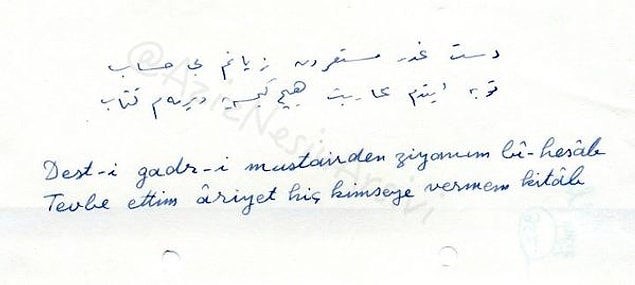 دست غدر مستعيردن زيانم بى حساب
توبه ايتدم عاريت هيچ كيمسيه ويرمم كتاب
Dest-i gadr-i mustairden ziyanım bî-hesâb
Tevbe ettim âriyet hiç kimseye vermem kitâb
@AzizNesinArsivi